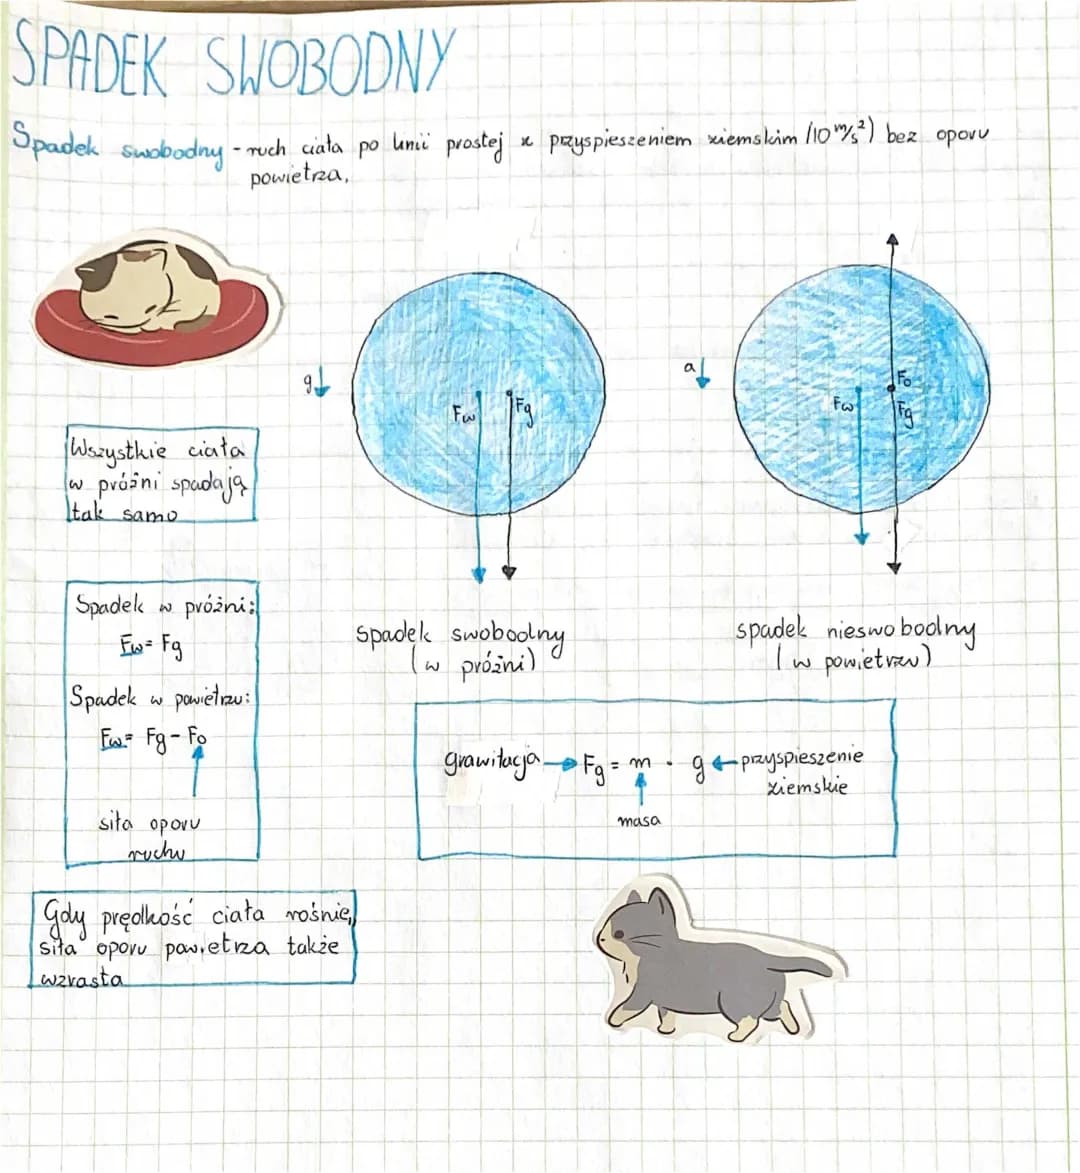 SPADEK SWOBODNY
Spadek swobodny - ruch ciała po linii prostej z przyspieszeniem ziemskim /10 m/s²) bez oporu
powietrza.
g
Fw
Fg
a
Fo
Fw
Fg
Wszystkie ciała
w próżni spadają
tak samo
Spadek w próżni:
Fw = Fg
Spadek w powietrzu:
Fw = Fg - Fo
siła oporu
ruchu
spadek swobodny
(w próżni)
spadek nieswobodny
(w powietrzu)
grawitacja → Fg = m · g ← przyspieszenie
ziemskie
masa
Gdy prędkość ciała rośnie,
siła oporu powietrza także
wzrasta